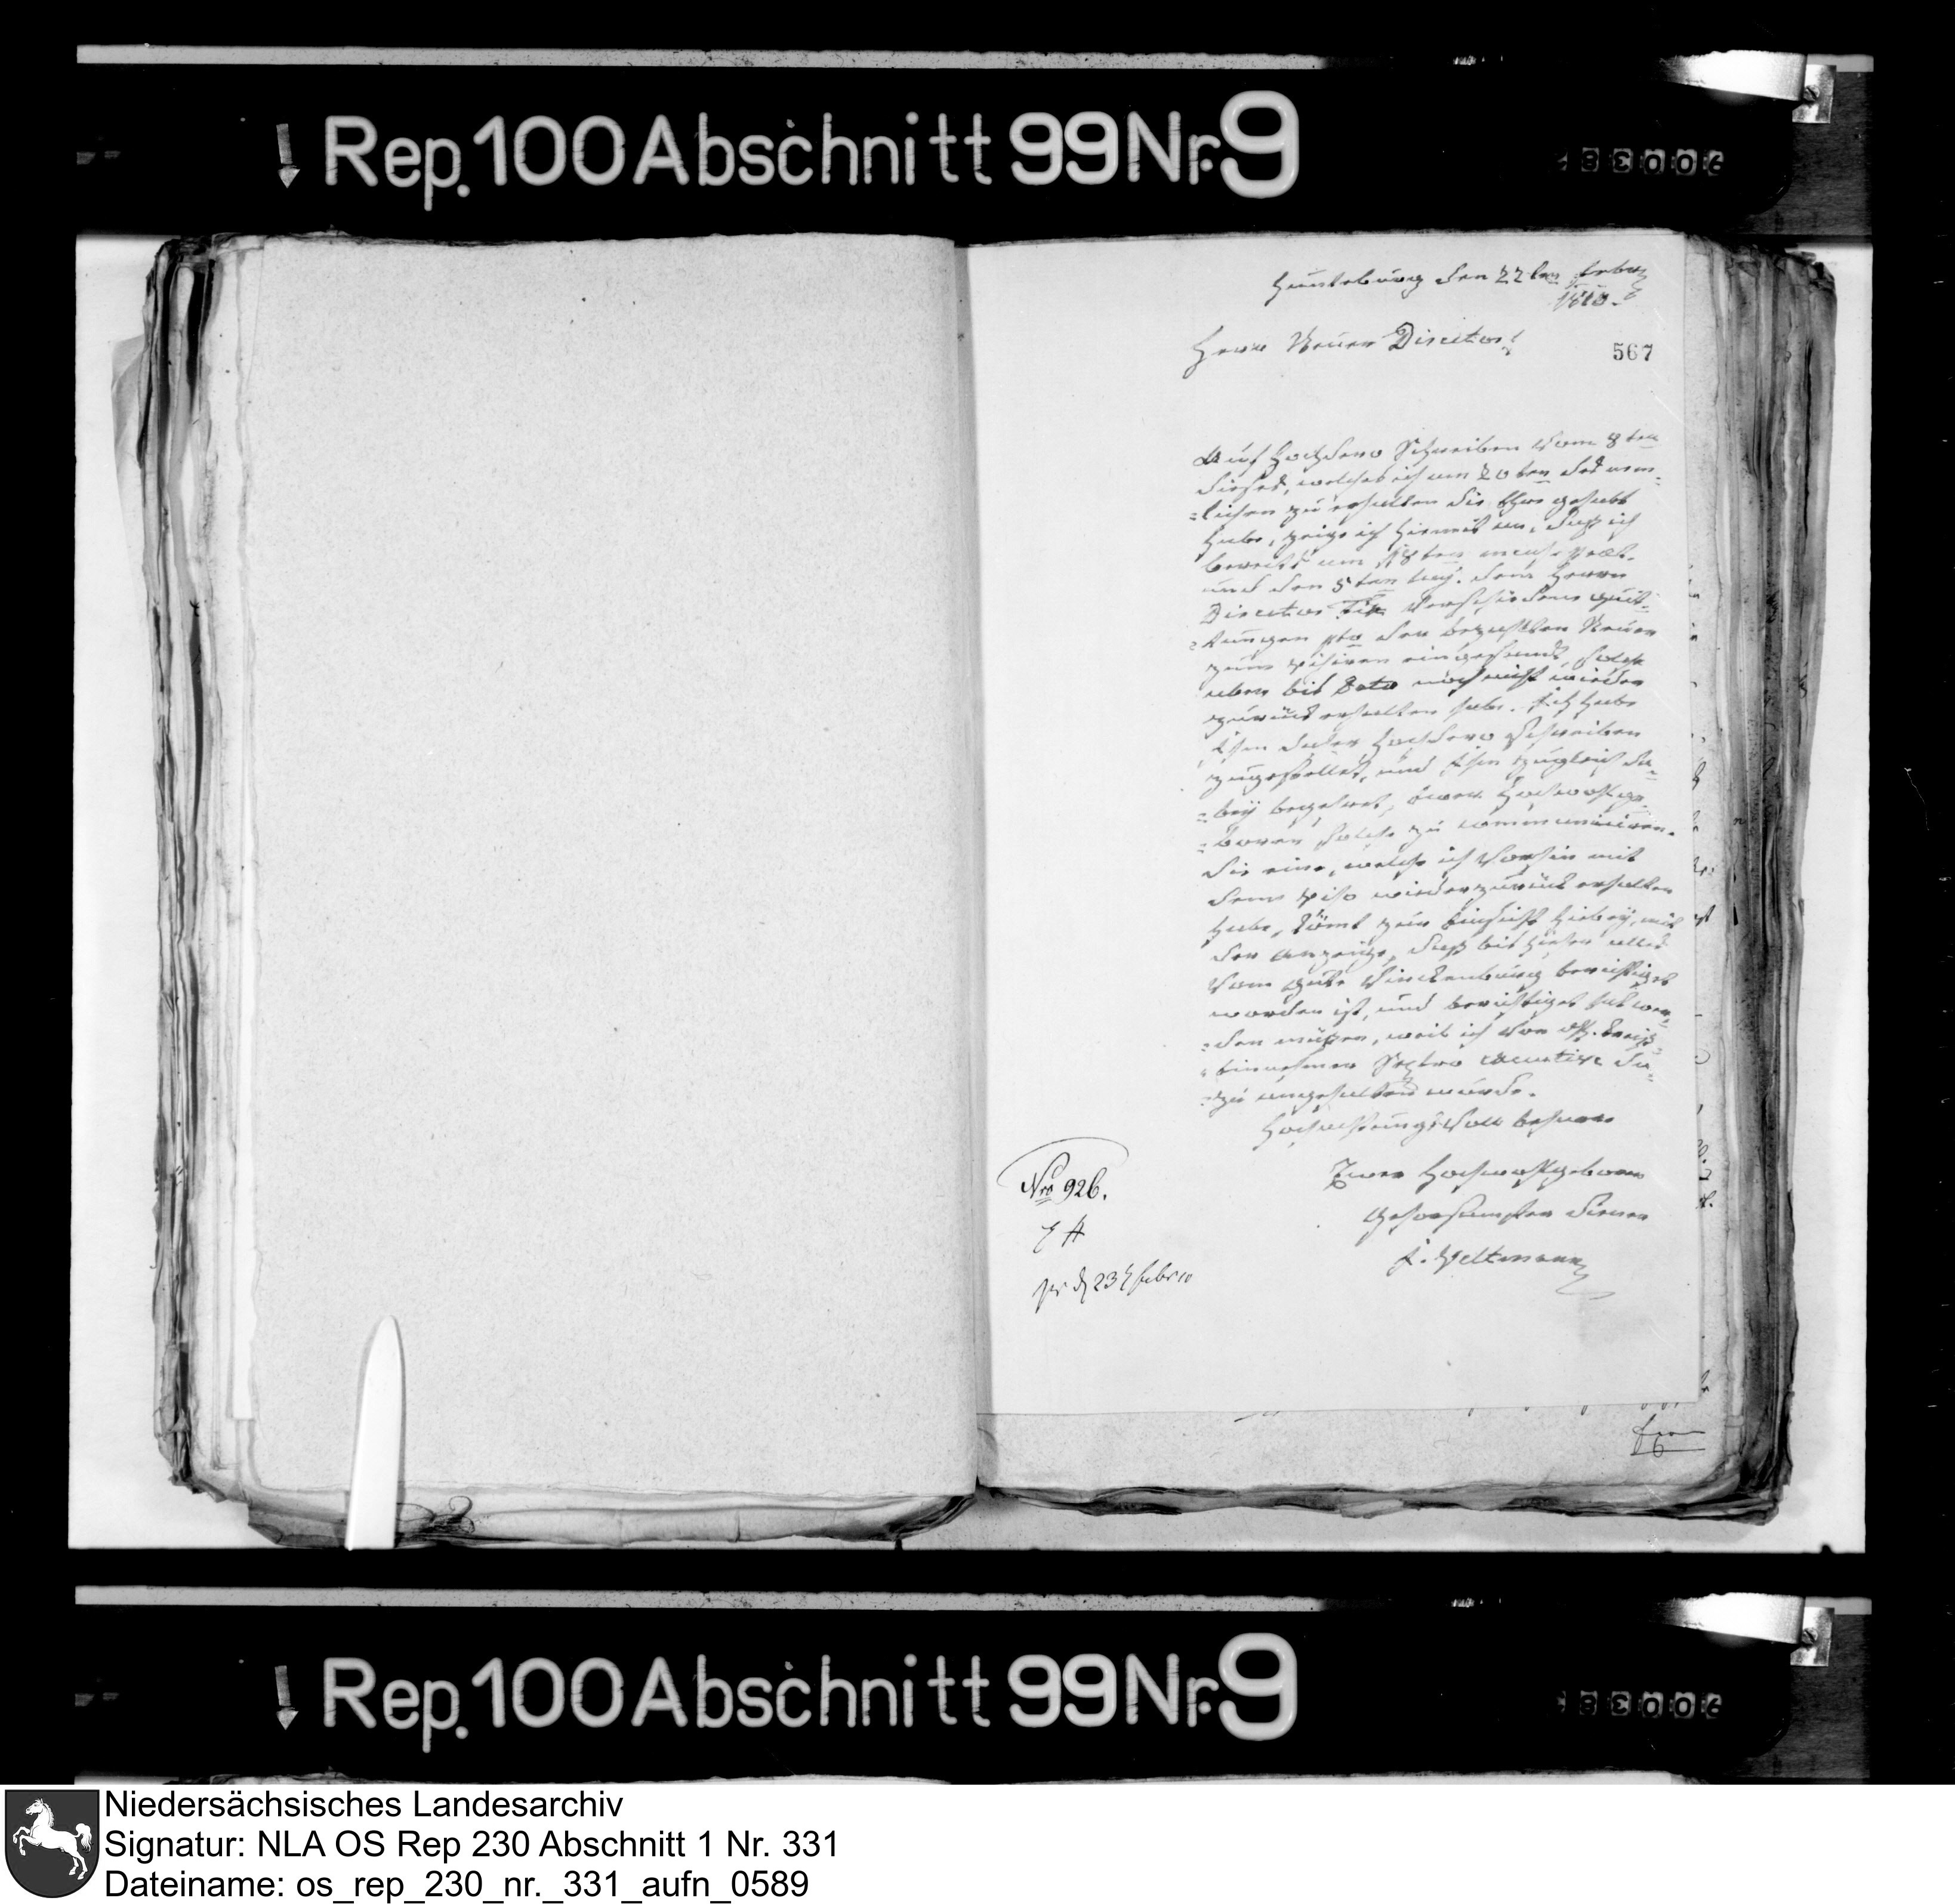 Rep. 100 Abschnitt 99 Nr. 9
Hunteburg den 22ten Febr.
1810.
Herr Steuer Director!
567
Auf Hochdero Schreiben vom 8ten
dieses, welches ich am 20ten des nem-
-lichen zu erhalten die Ehre gehabt
habe, zeige ich hiermit an, daß ich
bereits am 18ten
und den 5ten dem Herrn
Director verschiedene Quit-
-tungen pto der bezahlten Steuer
zum visiren eingesandt, solche
aber bis Dato noch nicht wieder
zurück erhalten habe. Ich habe
Ihm daher Hochdero Schreiben
zugestellet, und Ihm zugleich da-
-bey begehret, Euer Hochwohlge-
-boren solche zu communiciren.
Die eine, welche ich vorhin mit
dem viso wieder zurück erhalten
habe, kömt zur Einsicht hiebey, mit
der Anzeige, daß bis hiehin alles
vom Gute Streithorst berichtiget
worden ist, und berichtiget hat wer-
-den müßen, weil ich von Kreis-
-einnehmer executive da-
-zu angehalten wurde.
Hochachtungsvoll beharre
Euer Hochwohlgeboren
gehorsamster Diener
Veltmann
Nro 926.
23 Febr 10
Rep. 100 Abschnitt 99 Nr. 9
Niedersächsisches Landesarchiv
Signatur: NLA OS Rep 230 Abschnitt 1 Nr. 331
Dateiname: os_rep_230_nr._331_aufn_0589